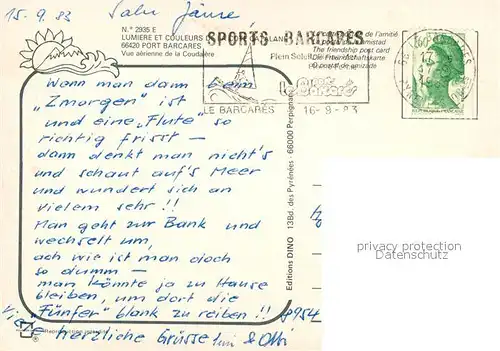 15-9.83 Salu Jänse
N.° 2935 E
LUMIERE ET COULEURS D
66420 PORT BARCARES
Vue aérienne de la Coudalère
SPORTS BARCARES
de l'amitié
The friendship post card
Die Freundschaftskarte
Plein Soleil
PORT Barcarès
LE BARCARÈS 16-9-83
Wann man dann beim
„Zmorgen" ist
und eine „Flute" so
richtig frisst —
dann denkt man nicht's
und schaut auf's Meer
und wundert sich an
vielem sehr!!
Man geht zur Bank und
wechselt um,
ach wie ist man doch
so dumm —
man könnte ja zu Hause
bleiben, um dort die
„Fünfer" blank zu reiben!!
Viele herzliche Grüsse
& Otti
8954
Editions DINO 13Bd. des Pyrénées - 66000 Perpignan
privacy protection
Datenschutz